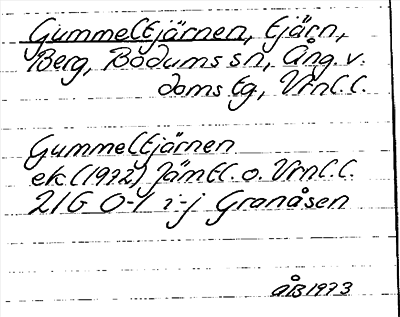 Gummeltjärnen, tjärn,
Berg, Bodums sn, Ång. v.
doms tg, Vrnl.l.
Gummeltjärnen
ek (1972) Jämtl. o. Vrnl.l.
21G 0-1 i-j Granåsen
ÅB 1973